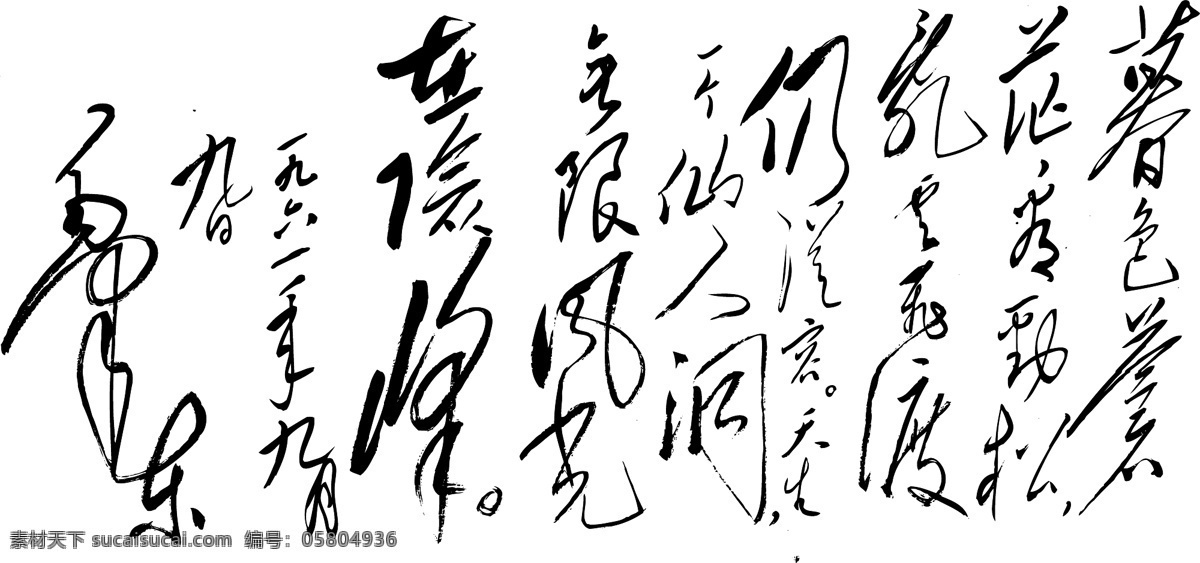 暮色苍
茫看劲松，
乱云飞渡
仍从容。天生
一个仙人洞，
无限风光
在险峰。
一九六一年九月
九日
毛泽东
素材天下 sucaisucai.com 编号：05804936